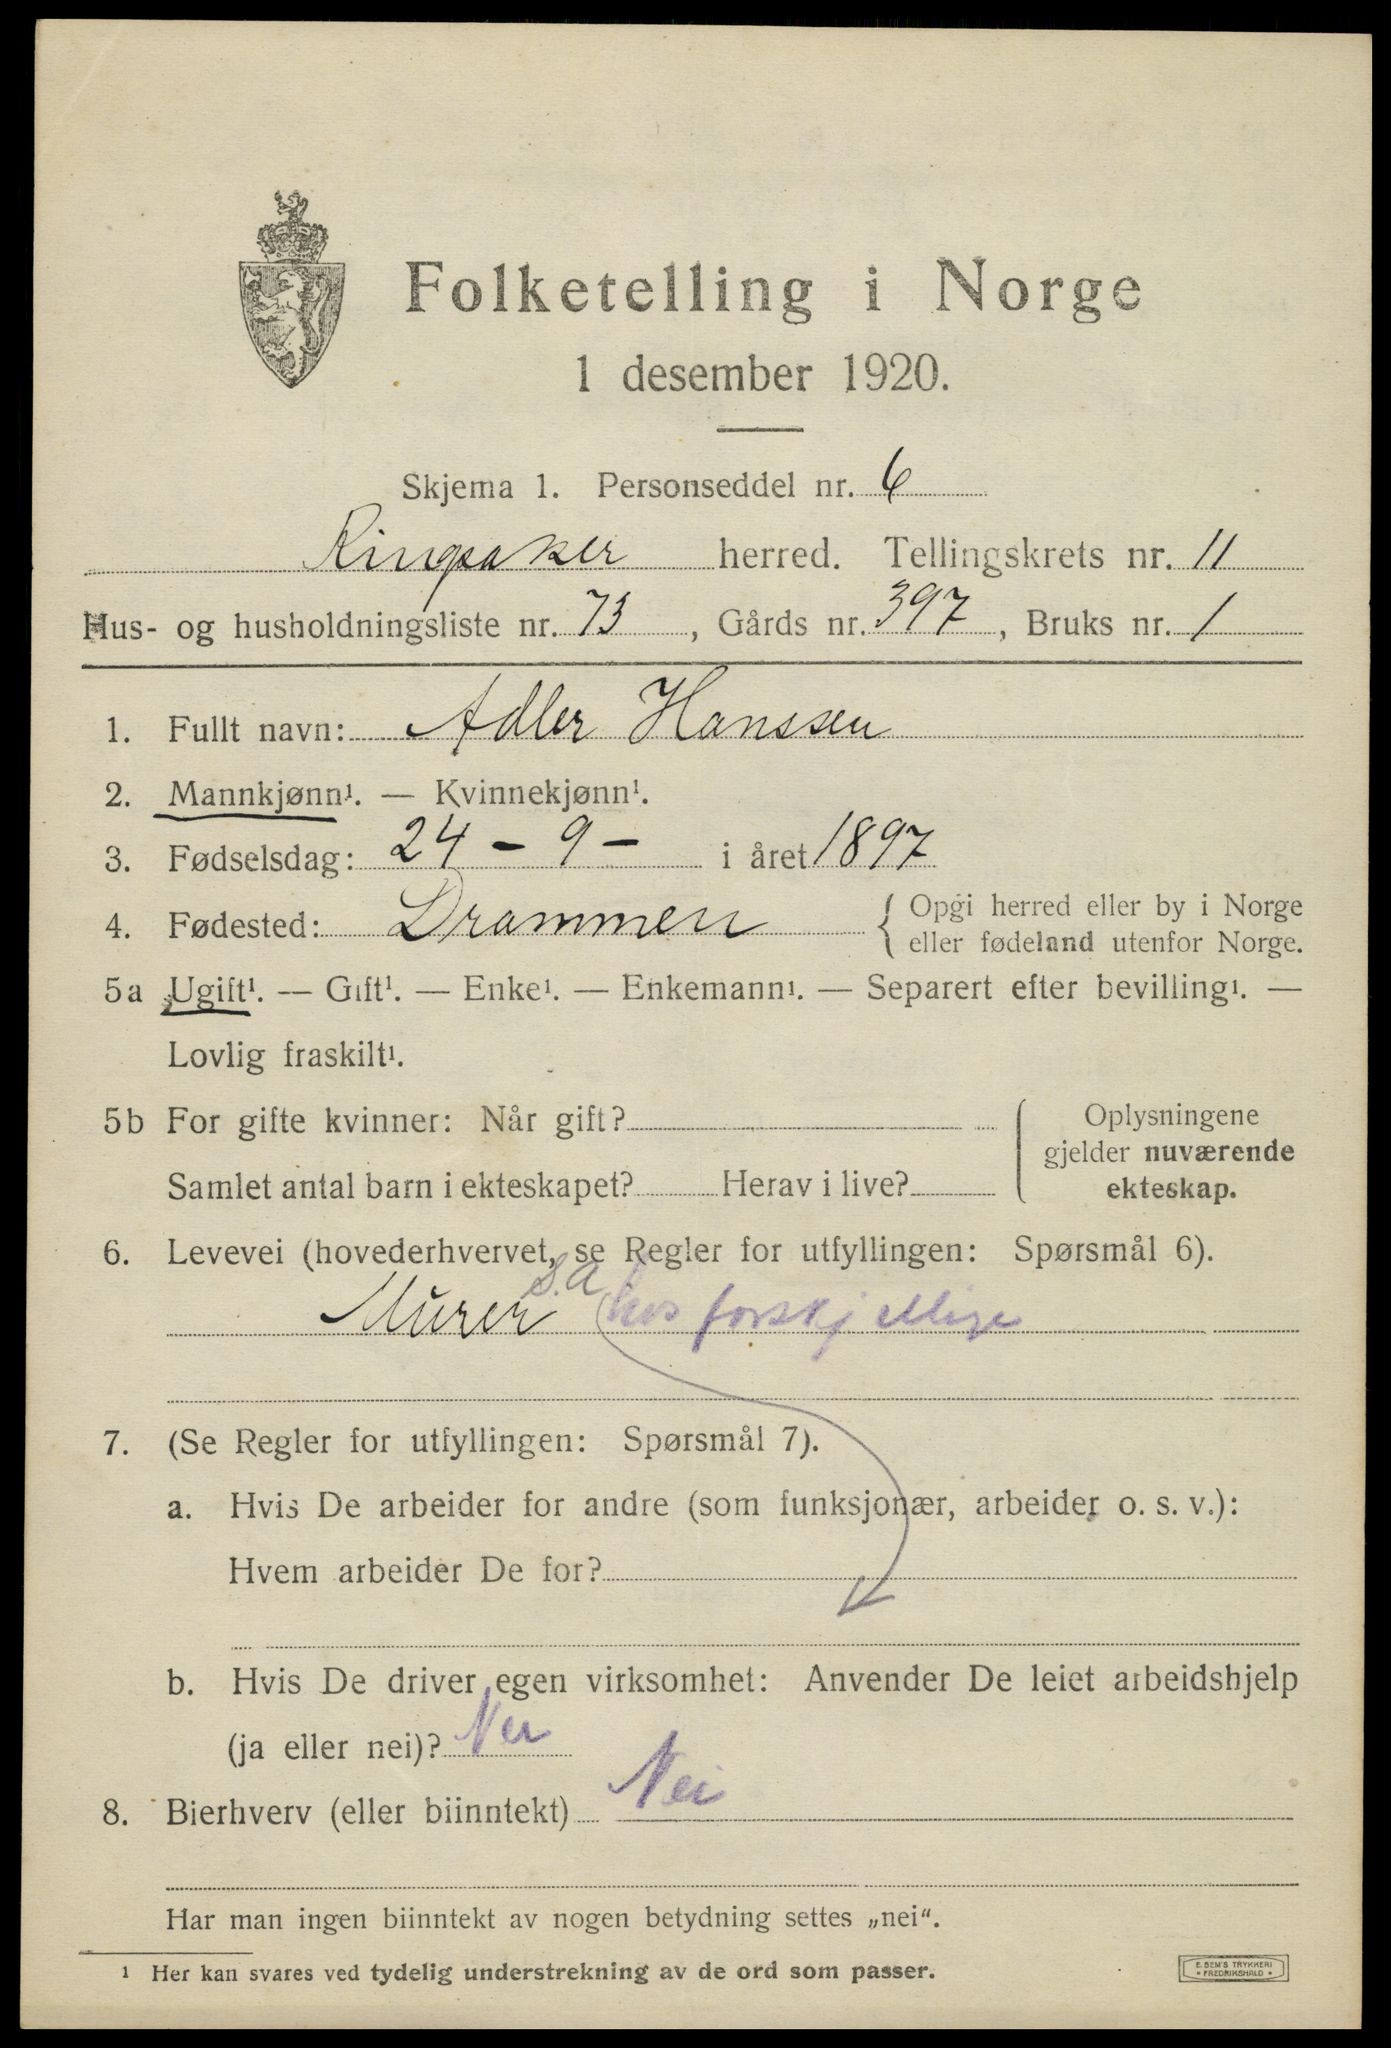 Folketelling i Norge
1 desember 1920.
Skjema 1. Personseddel nr. 6
Ringsaker herred. Tellingskrets nr. 11
Hus- og husholdningsliste nr. 73, Gårds nr. 397, Bruks nr. 1
1. Fullt navn: Adler Hanssen
2. Mannkjønn¹. — Kvinnekjønn¹.
3. Fødselsdag: 24 - 9 - i året 1897
4. Fødested: Drammen { Opgi herred eller by i Norge
eller fødeland utenfor Norge.
5a Ugift¹. — Gift¹. — Enke¹. — Enkemann¹. — Separert efter bevilling¹. —
Lovlig fraskilt¹.
5b For gifte kvinner: Når gift?
Samlet antal barn i ekteskapet? Herav i live?
Oplysningene
gjelder nuværende
ekteskap.
6. Levevei (hovederhvervet, se Regler for utfyllingen: Spørsmål 6).
s.a
Murer hos forskjellige
7. (Se Regler for utfyllingen: Spørsmål 7).
a. Hvis De arbeider for andre (som funksjonær, arbeider o. s. v.):
Hvem arbeider De for?
b. Hvis De driver egen virksomhet: Anvender De leiet arbeidshjelp
(ja eller nei)? Nei
8. Bierhverv (eller biinntekt) Nei
Har man ingen biinntekt av nogen betydning settes „nei“.
¹ Her kan svares ved tydelig understrekning av de ord som passer.
E. SEM'S TRYKKERI
FREDRIKSHALD